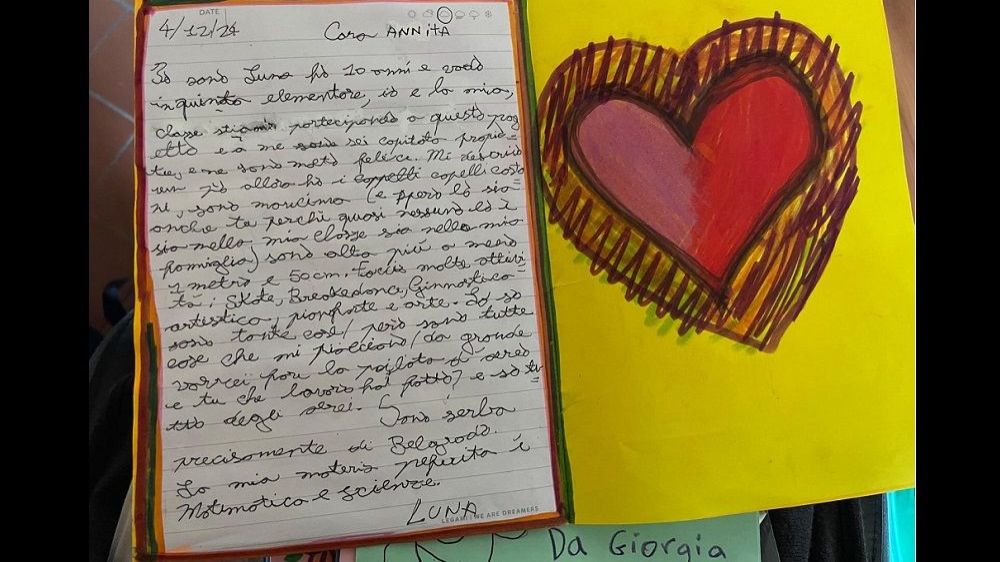 DATE
4/12/24
Cara ANNITA
Io sono Luna ho 10 anni e vado
in quinta elementare, io e la mia,
classe stiamo partecipando a questo prog
etto e a me sei capitata proprio
tu, e ne sono molto felice. Mi descrivo
io allora ho i capelli capelli casta
ni, sono mancina (e spero lo sia
anche te perchè quasi nessuno lo è
sia nella mia classe sia nella mia
famiglia) sono alta più o meno
1 metro e 50 cm. Faccio molte attivi
tà: Skate, Breakedance, Ginnastica
artistica, pianoforte e arte. Lo so
sono tante cose/ però sono tutte
cose che mi piacciono/ da grande
vorrei fare la pilota di aereo
e tu che lavoro hai fatto? e so tu=
tto degli aerei. Sono serba
precisamente di Belgrado.
La mia materia preferita è
Matematica e scienze.
LUNA
LEGAMI WE ARE DREAMERS
Da Giorgia